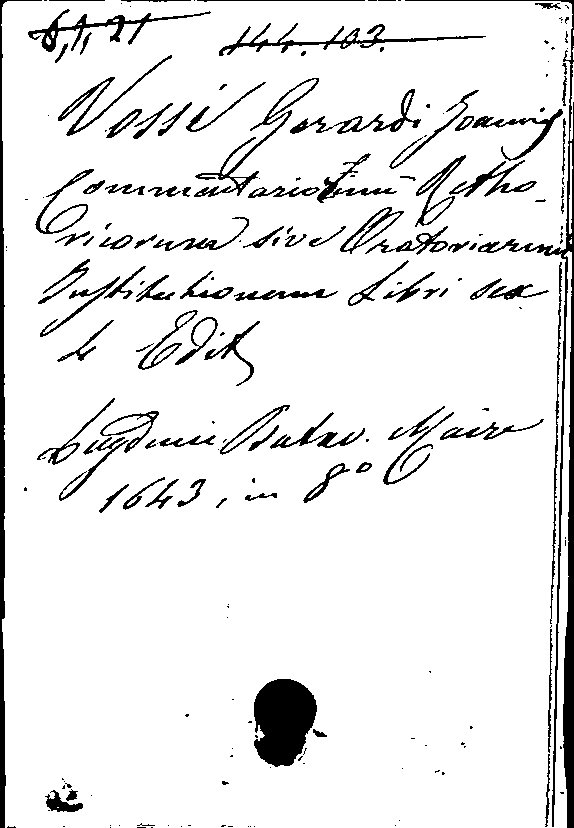 6,1,21 144.103.
Vossi Gerardi Joannis
Commentariorum Retho-
ricorum sive Oratoriarum
Institutionum Libri sex
4 Edit
Lugduni Batav. Maire
1643, in 8o